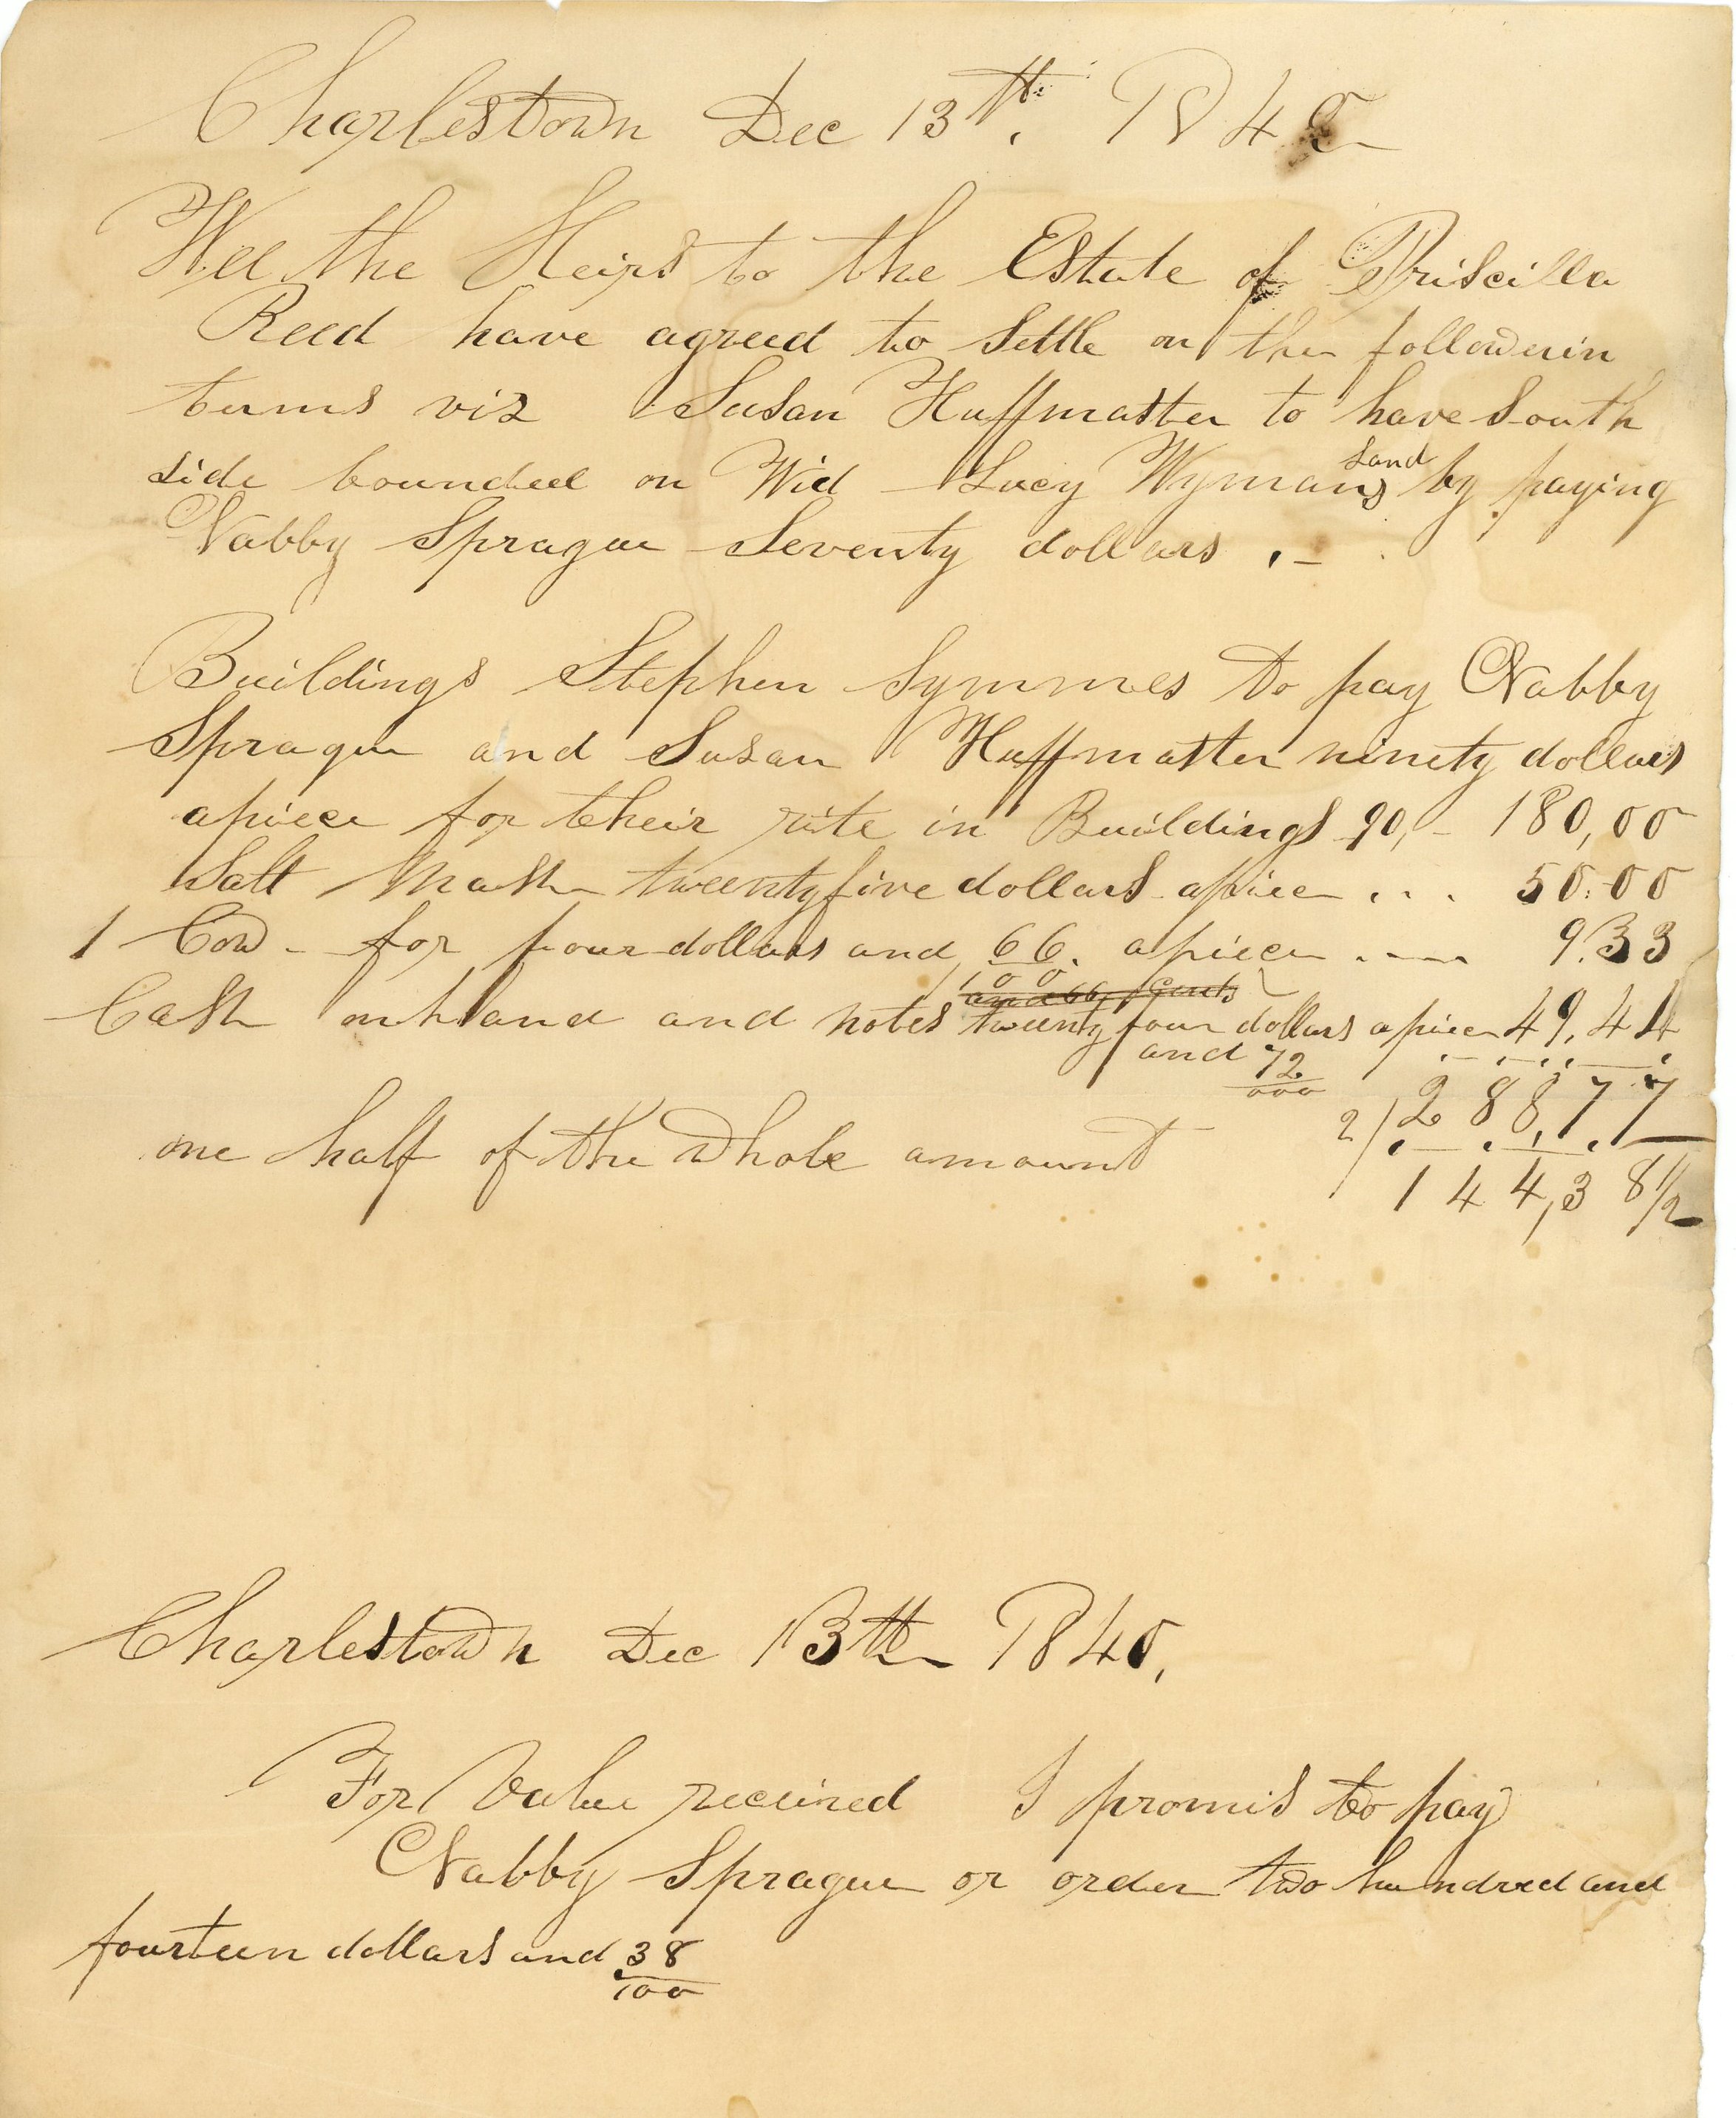 Charlestown Dec 13th. 1840
Wee the Heirs to the Estate of Priscilla
Reed have agreed to Settle on the followein
terms viz Susan Huffmaster to have South
side bounded on Wid Lucy Wymans land by paying
Nabby Sprague Seventy dollars . -
Buildings Stephen Symmes to pay Nabby
Sprague and Susan Huffmaster ninety dollars
apiece for their rite in Buildings 90, - 180,00
Salt Mash twentyfive dollars apiece . . . 50.00
1 Cow - for four dollars and 66/100 apiece .... 9.33
and 66 Cents
Cash on hand and notes twenty four dollars apiece 49.44
and 72/000
2) 288,77
one half of the whole amount 144,38 1/2
Charlestown Dec 13th 1840,
For Value received I promis to pay
Nabby Sprague or order two hundred and
fourteen dollars and 38/100